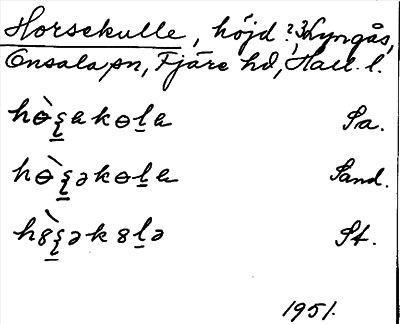 Horsekulle, höjd ?, Kyngås,
Onsala sn, Fjäre hd, Hall. l.
hɵ̀ʂakɵl̠a Sa.
hɵ̀ʂəkɵl̠a Sand.
h8̀ʂək8l̠ə St.
1951.